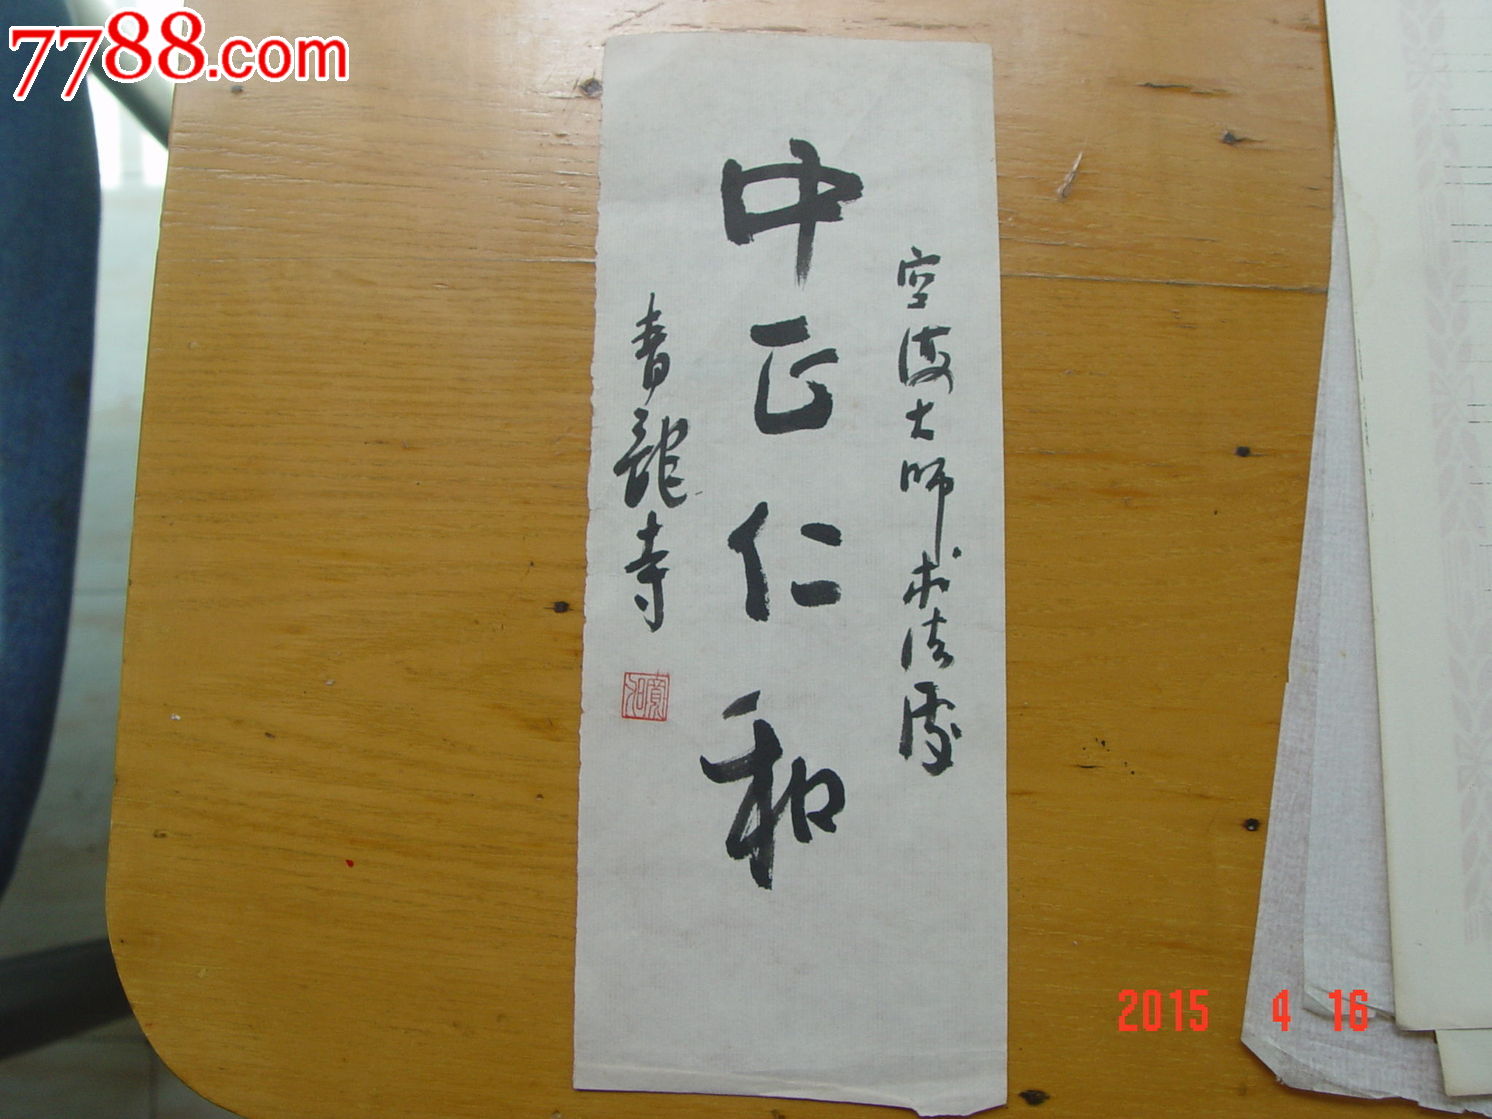 7788.com
空海大师求法处
中正仁和
青龍寺
2015 4 16